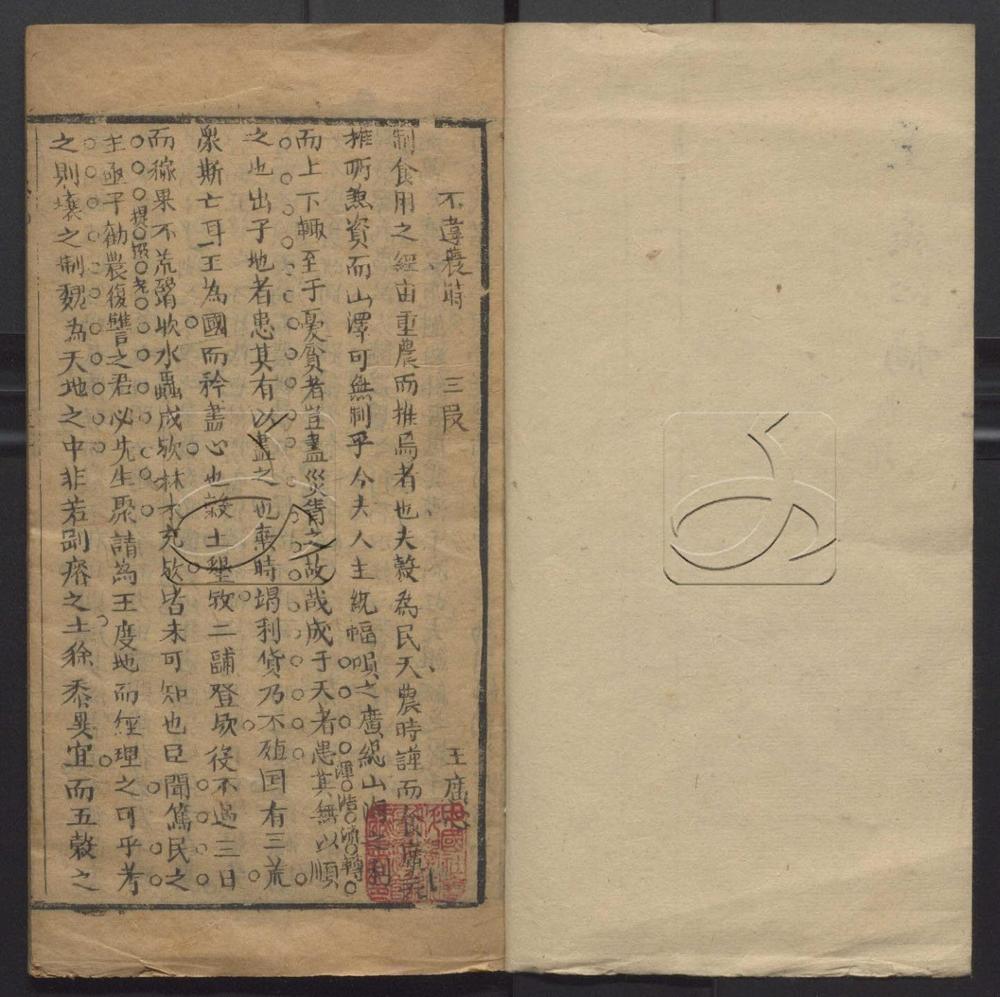 不違農時　三段　王廣心
制食用之經亩重農而推焉者也夫穀為民天農時謹而食廣矣
推所兼資而山澤可無制乎今夫人主統幅順之廣總山海之利
而上下輙至于憂貧者豈盡災眚之故哉成于天者患其無以順
之也出于地者患其有以盡之也棄時竭利貨乃不殖国有三荒
衆斯亡耳王為國而矜盡心也穀土墾牧二鬴登欤役不過三日
而稼果不荒罶收水蟲成欤林木充欤皆未可知也臣聞篤民之
主亟于勸農復讐之君必先生聚請為王度地而經理之可乎考
之則壤之制魏為天地之中非若剛瘠之土稌黍異宜而五穀之
渾浩流轉
提掇老